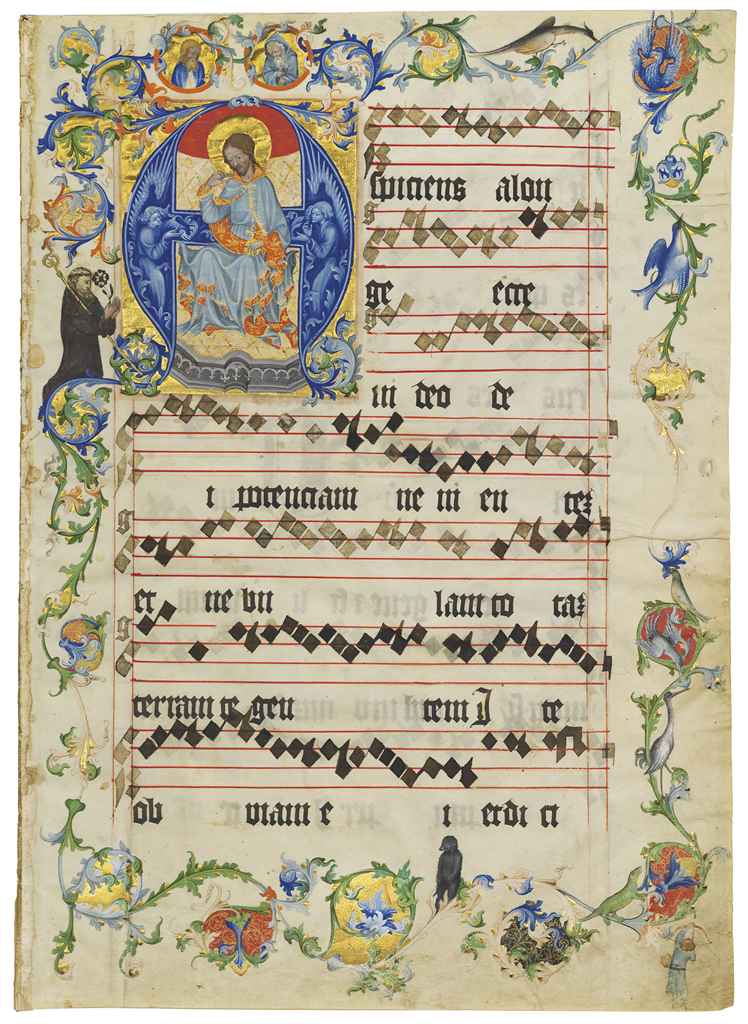 A
spiciens alon
ge ecce
vi deo de
i potenciam ve ni en tez
et ne bu lam to taz
terram te gen tem I te
ob viam e i et di ci